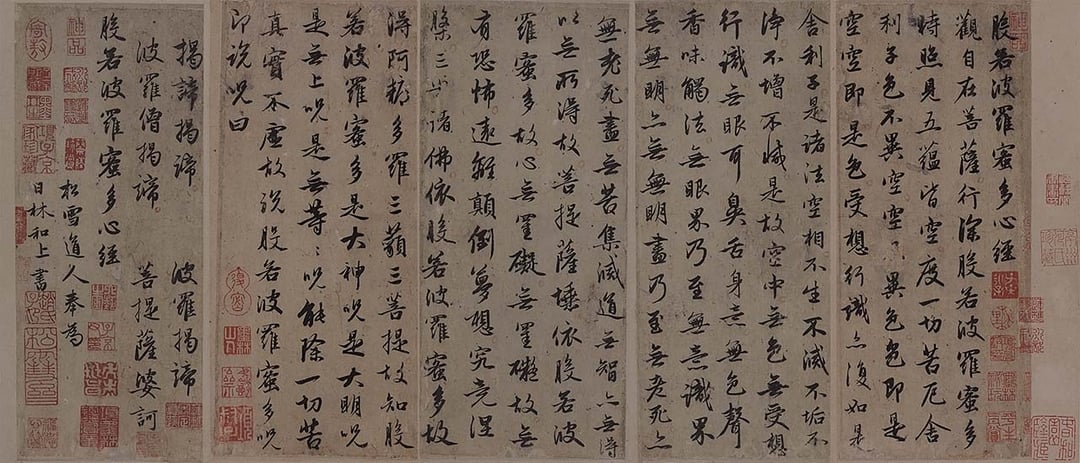 般若波羅蜜多心經
觀自在菩薩行深般若波羅蜜多
時照見五蘊皆空度一切苦厄舍
利子色不異空空不異色色即是
空空即是色受想行識亦復如是
舍利子是諸法空相不生不滅不垢不
淨不增不減是故空中無色無受想
行識無眼耳鼻舌身意無色聲
香味觸法無眼界乃至無意識界
無無明亦無無明盡乃至無老死亦
無老死盡無苦集滅道無智亦無得
以無所得故菩提薩埵依般若波
羅蜜多故心無罣礙無罣礙故無
有恐怖遠離顛倒夢想究竟涅
槃三世諸佛依般若波羅蜜多故
得阿耨多羅三藐三菩提故知般
若波羅蜜多是大神呪是大明呪
是無上呪是無等〻呪能除一切苦
真實不虛故說般若波羅蜜多呪
即說呪曰
揭諦揭諦 波羅揭諦
波羅僧揭諦 菩提薩婆訶
般若波羅蜜多心經
松雪道人奉為
日林和上書